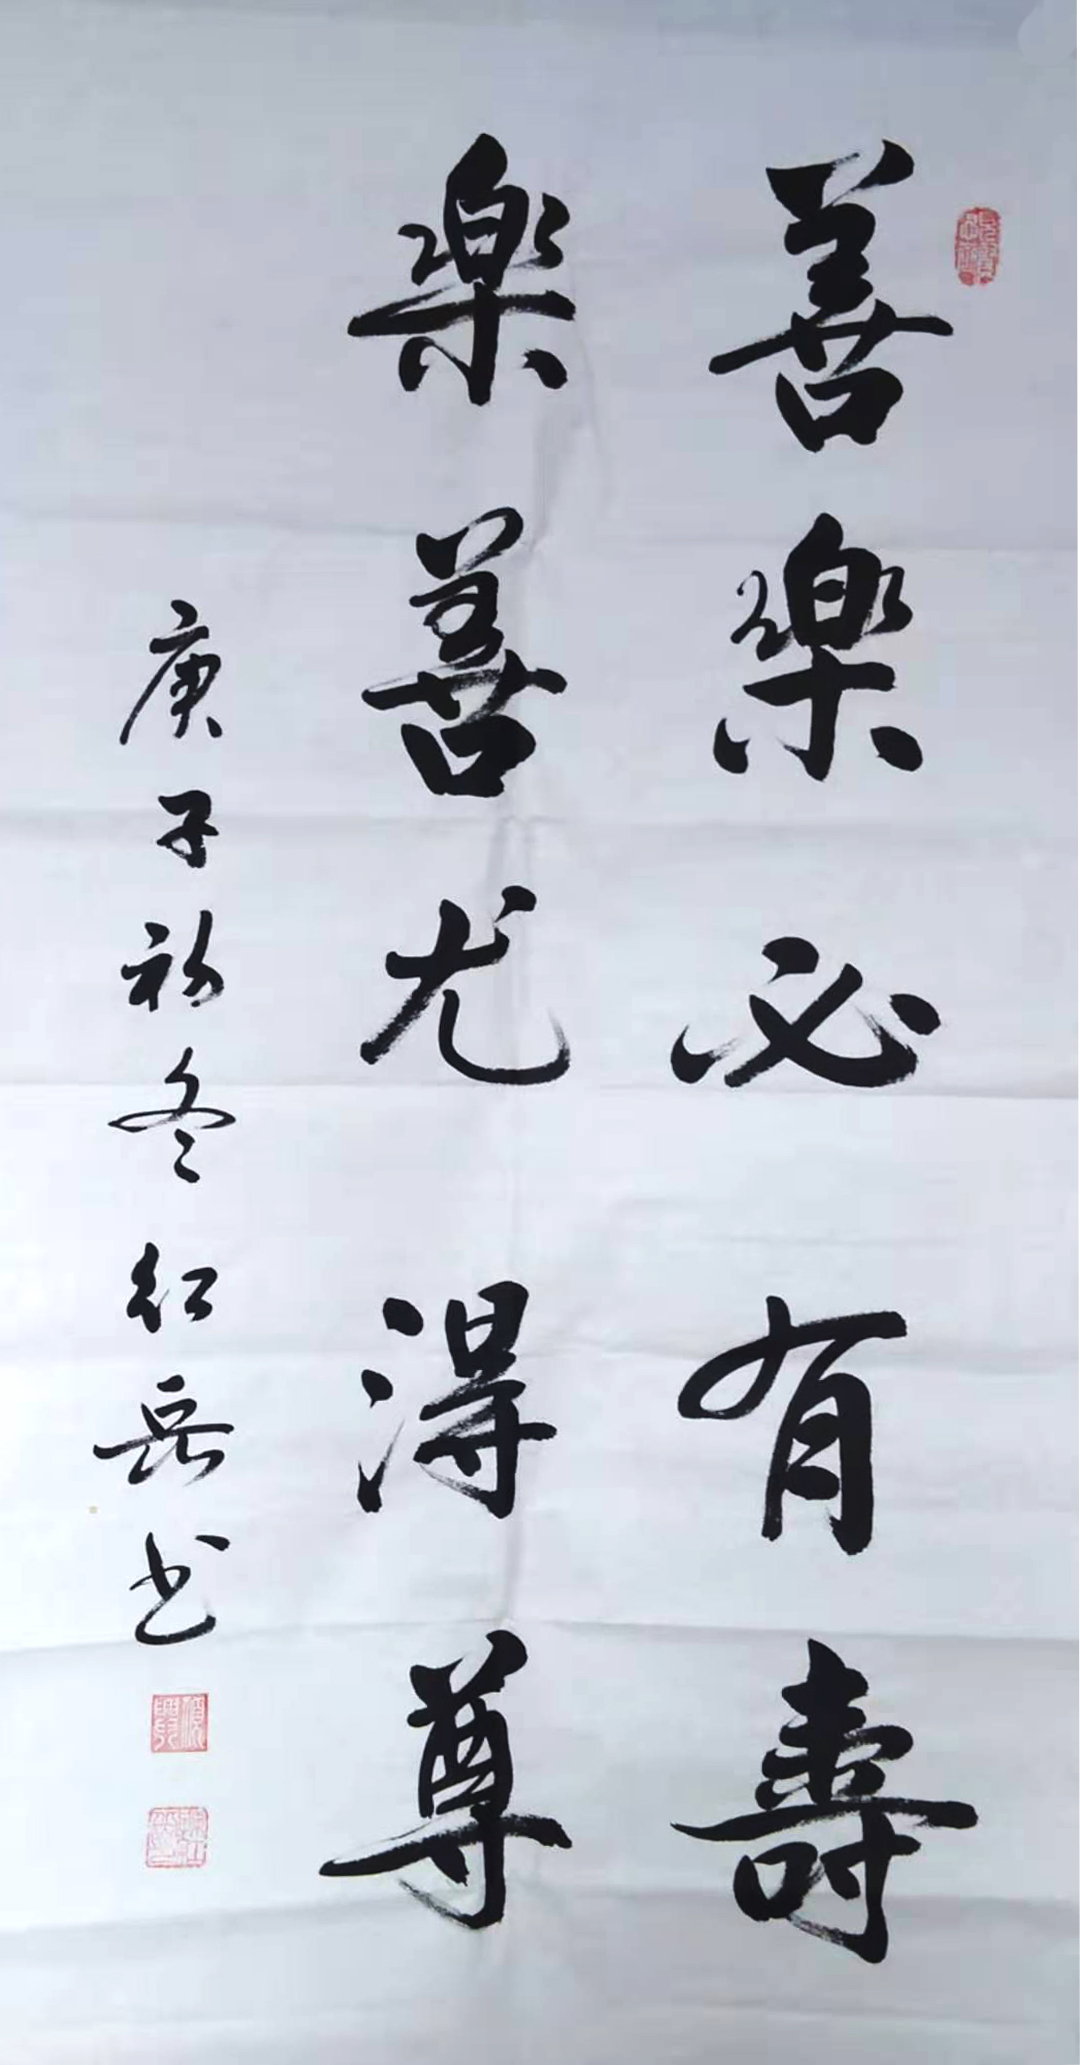 善樂必有壽
樂善尤得尊
庚子初冬紅岳书